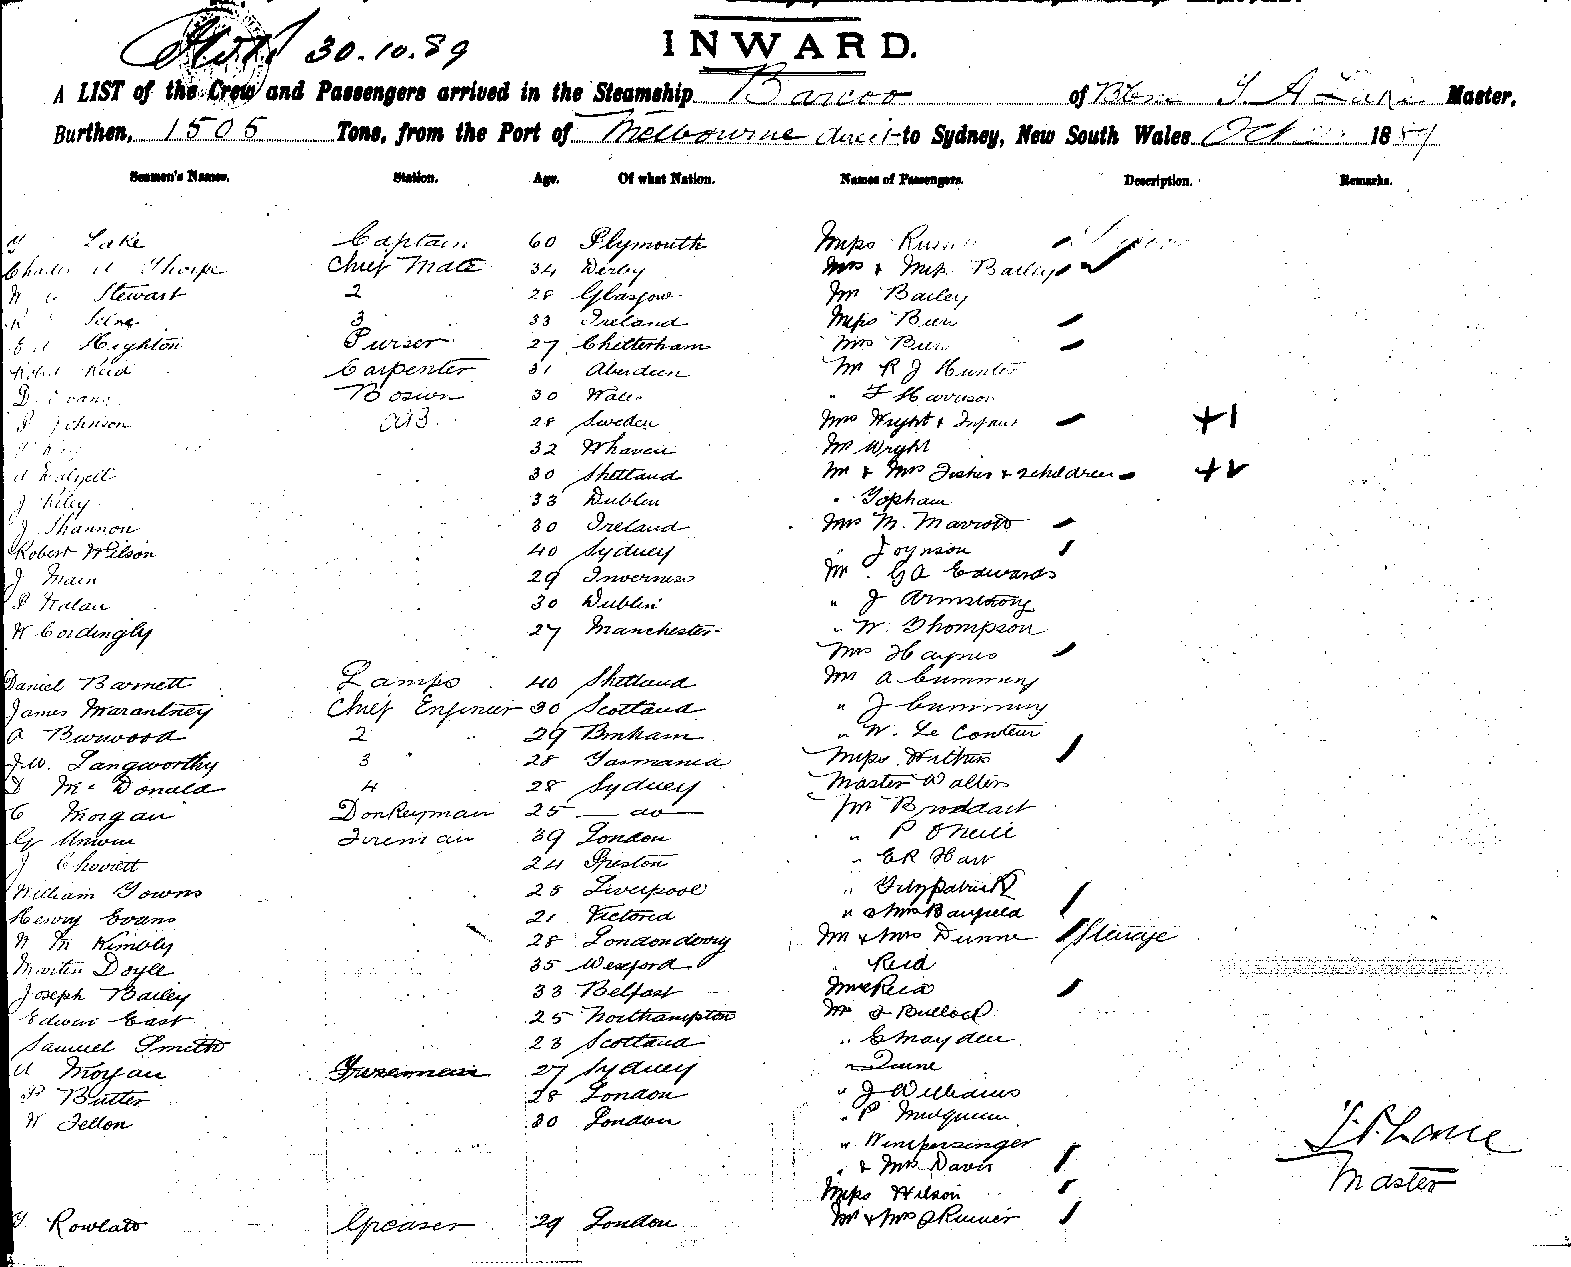 30.10.89
INWARD.
A LIST of the Crew and Passengers arrived in the Steamship Barcoo of Master,
Burthen, 1505 Tons, from the Port of Melbourne direct to Sydney, New South Wales Oct 1889
Seamen's Names. Station. Age. Of what Nation. Names of Passengers. Description. Remarks.
Lake Captain 60 Plymouth Miss
Charles A Thorpe Chief Mate 34 Derby Mrs & Miss Bailey
Stewart 2 28 Glasgow Mr Bailey
3 33 Ireland Miss
Heighton Purser 27 Cheltenham Mrs
Robt Reid Carpenter 31 Aberdeen Mr R J Hunter
D Evans Bosun 30 Wales " F Harrison
Johnson AB 28 Sweden Mrs Wright & Infant +1
32 Whaven Mr Wright
30 Shetland Mr & Mrs Fisher & 2 children +2
J Riley 33 Dublin " Topham
J Shannon 30 Ireland Mrs M. Marriott
Robert Wilson 40 Sydney " Joynson
J Main 29 Inverness Mr GA Edwards
P Nalan 30 Dublin " J Armstrong
W Cordingly 27 Manchester " W. Thompson
Mrs Haynes
Daniel Barnett Lamps 40 Shetland Mr A Cumming
James Marantney Chief Engineer 30 Scotland " J Cumming
A Burwood 2 29 Bmham " W. Le Couteur
J.W. Langworthy 3 28 Tasmania Miss
D McDonald 4 28 Sydney Master Walters
C Morgan Donkeyman 25 do Mr Broddart
G Unwin Fireman 39 London " P O'Neill
J 24 Preston " ER Harr
William Towns 25 Liverpool " Fitzpatrick
Henry Evans 21 Victoria " & Mrs Banfield
W Kimbly 28 Londonderry Mr & Mrs Dunne Steerage
Martin Doyle 35 Wexford " Reid
Joseph Bailey 33 Belfast Mrs Reid
Edwin East 25 Northampton Mr J Bullock
Samuel Smith 23 Scotland " C Mayden
A Morgan Fireman 27 Sydney
P Butter 28 London " J Williams
W Fellon 30 London " P
" Wimpersinger
" & Mrs Davis
Miss Wilson
Rowlatt Greaser 29 London Mr & Mrs
Master